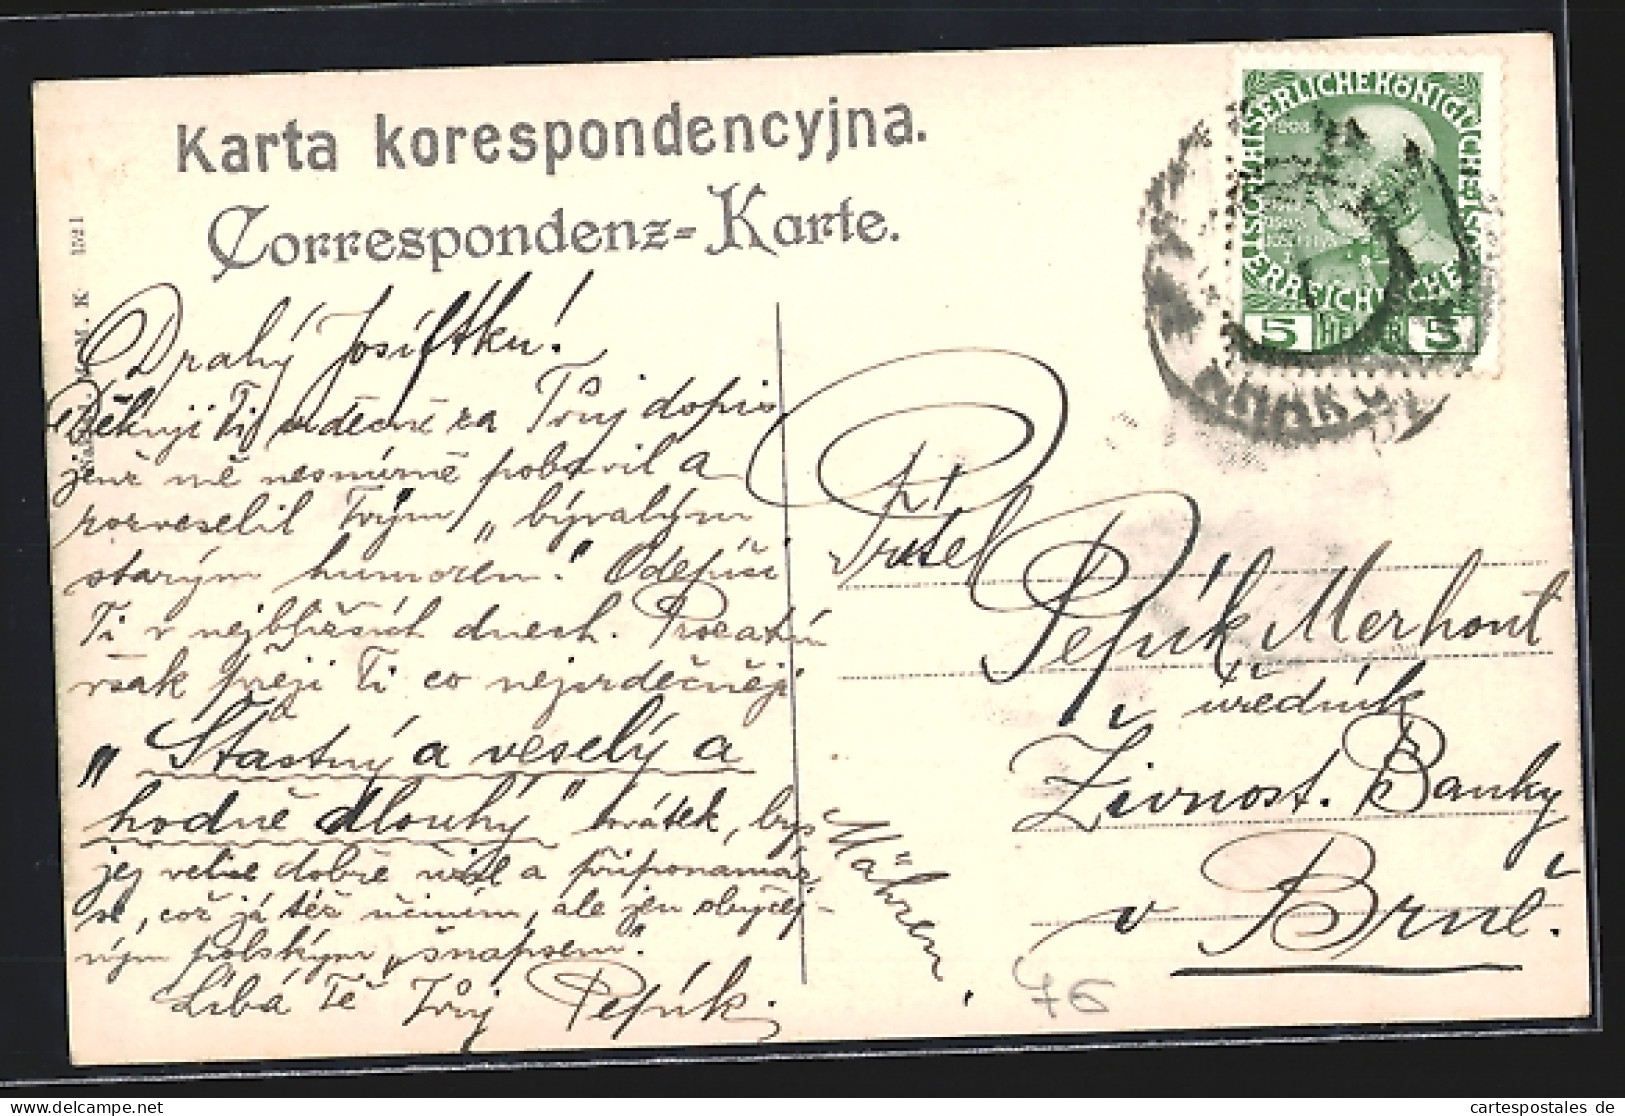 Karta korespondencyjna.
Correspondenz-Karte.
Drahý Josífku!
Děkuji Ti srdečně za Tvůj dopis
jenž mě nesmírně pobavil a
rozveselil Tvým „bývalým
starým humorem." Odepíši
Ti v nejbližších dnech. Prozatím
však přeji Ti co nejsrdečněji
„Šťastný a veselý a
hodně dlouhý" svátek, bys
jej velice dobře užil a připomínáš
se, což já též učiním, ale jen obyčej-
ným polským „šnapsem".
Líbá Tě Tvůj Pepík.
Přítel
Pepík Merhout
úředník
Živnost. Banky
v Brně.
Mähren
76
KAISERLICHE KÖNIGLICHE ÖSTERREICHISCHE
1908
5 HELLER 5
1521
cartespostales de